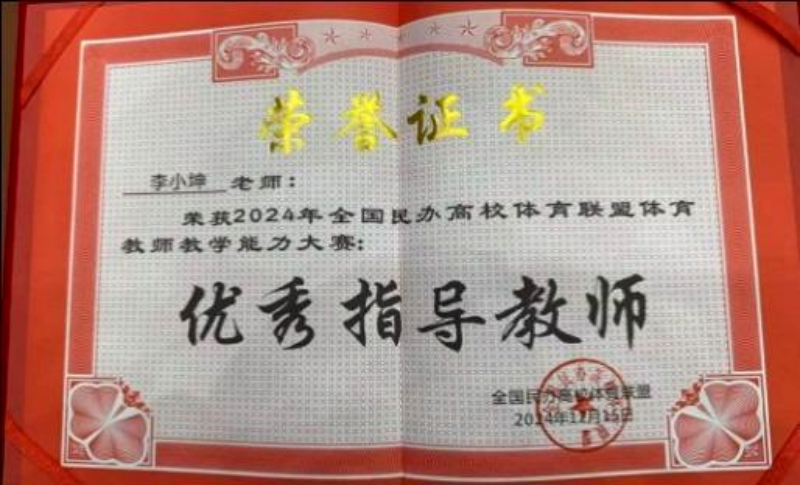 荣誉证书
李小坤 老师：
荣获2024年全国民办高校体育联盟体育
教师教学能力大赛：
优秀指导教师
全国民办高校体育联盟
2024年12月15日